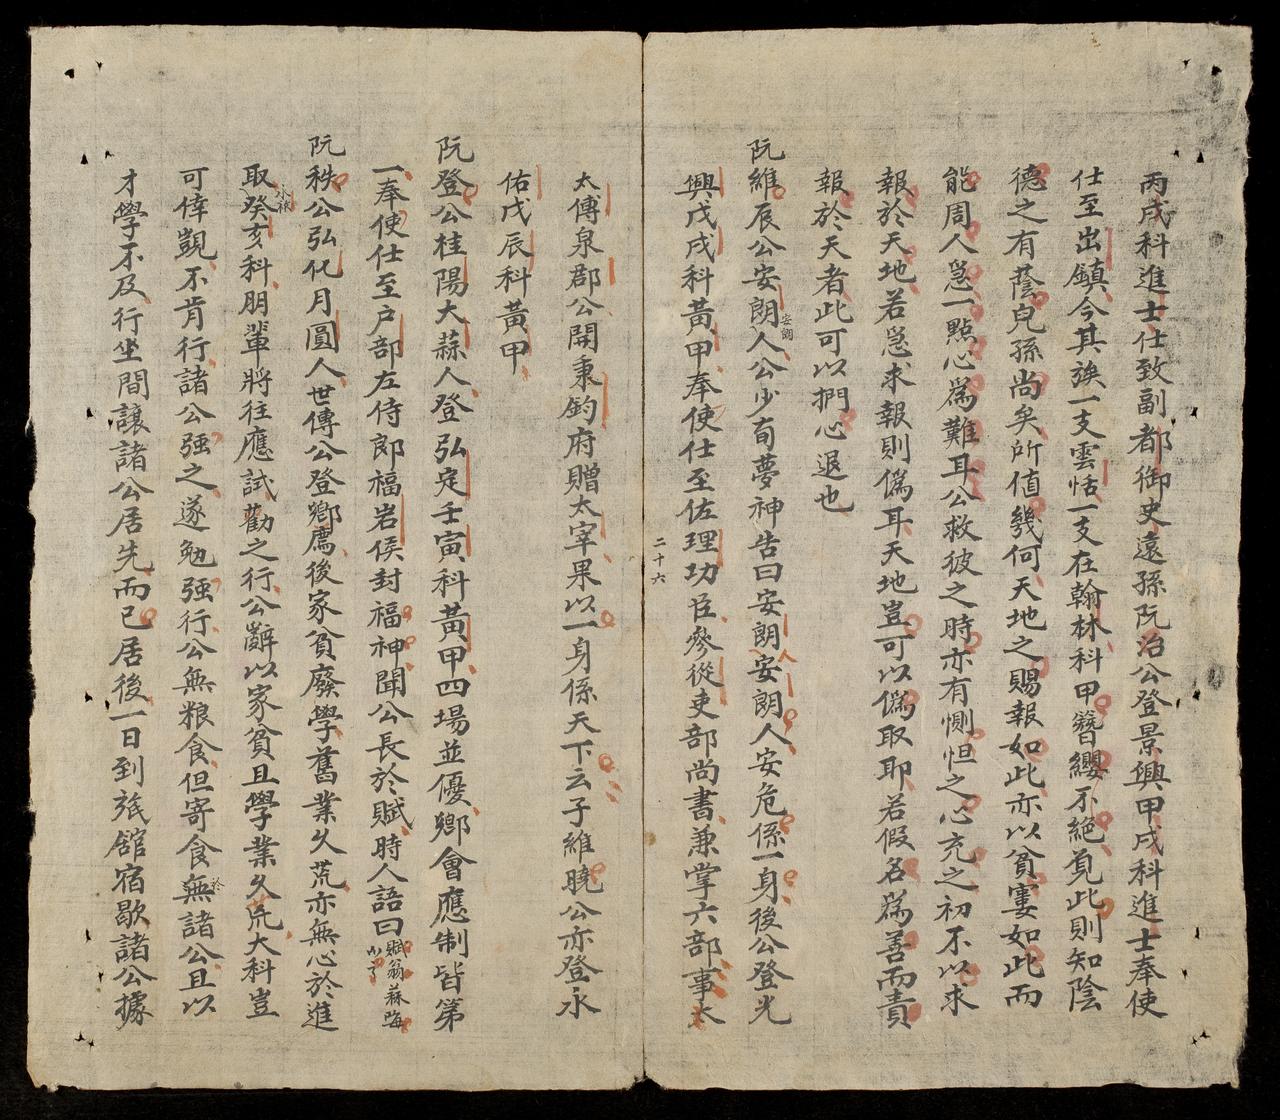 丙戌科進士仕致副都御史遠孫阮治公登景興甲戌科進士奉使
仕至出鎮今其族一支雲恬一支在翰林科甲簪纓不絶覓此則知陰
德之有蔭兒孫尚矣所值幾何天地之賜報如此亦以貧寠如此而
能周人爲一點心爲難耳公救彼之時亦有惻怛之心充之初不以求
報於天地若爲求報則僞耳天地豈可以僞取耶若假名爲善而責
報於天者此可以捫心退也
阮維辰公安朗人公少有夢神告曰安朗安朗人安危係一身後公登光
安朗
興戊戌科黄甲奉使仕至佐理功臣參從吏部尚書兼掌六部事太
二十六
太傅泉郡公開秉鈞府贈太宰果以一身係天下云子維曉公亦登永
佑戊辰科黄甲
阮登公桂陽大蒜人登弘定壬寅科黄甲四場並優鄉會應制皆第
一奉使仕至户部左侍郎福岩侯封福神聞公長於賦時人語曰賦翁蘇晦
阮秩公弘化月圓人世傳公登鄉薦後家貧廢學舊業久荒亦無心於進
取癸亥科朋輩將往應試勸之行公辭以家貧且學業久荒大科豈
永祚
可倖覬不肯行諸公强之遂勉强行公無粮食但寄食無諸公且以
於
才學不及行坐間讓諸公居先而已居後一日到旅舘宿歇諸公據